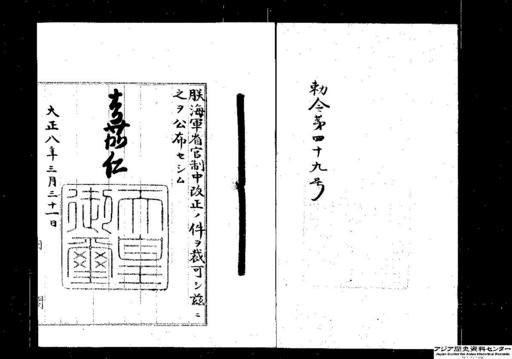 勅令第四十九号
朕海軍省官制中改正ノ件ヲ裁可シ茲ニ
之ヲ公布セシム
嘉仁
天皇御璽
大正八年三月三十一日
アジア歴史資料センター
Japan Center for Asian Historical Records